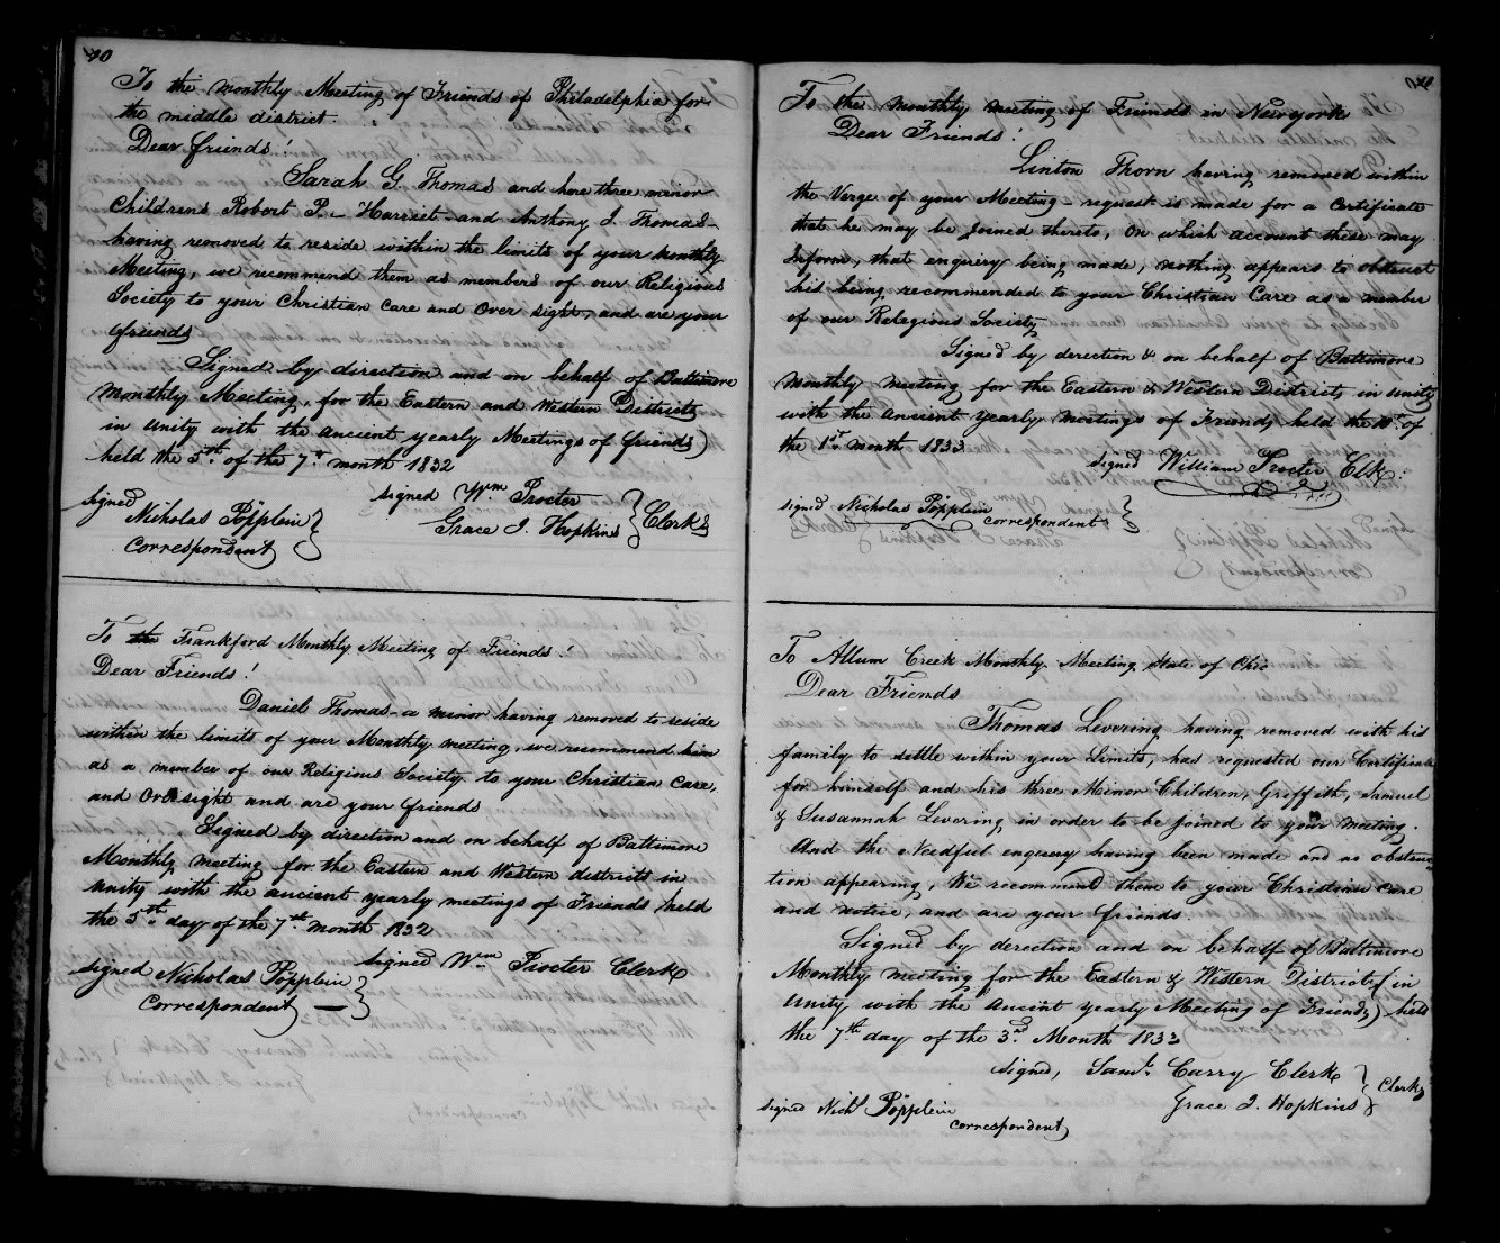 20
To the monthly Meeting of Friends of Philadelphia for
the middle district.
Dear friends!
Sarah G. Thomas and here three minor
Childrens Robert P. Harriet and Anthony J. Thomas
having removed to reside within the limits of your monthly
Meeting, we recommend them as members of our Religious
Society to your Christian Care and Over sight, and are your
friends
Signed by direction and on behalf of Baltimore
monthly Meeting, for the Eastern and Western Districts
in unity with the ancient yearly Meetings of friends)
held the 5th of the 7th month 1832
signed Wm Procter
Grace J. Hopkins } Clerks
signed
Nicholas Pöpplein
Correspondent }
To the Frankford Monthly Meeting of Friends!
Dear Friends!
Daniel Thomas a minor having removed to reside
within the limits of your Monthly meeting, we recommend him
as a member of our Religious Society to your Christian Care,
and Oversight and are your friends
Signed by direction and on behalf of Baltimore
Monthly meeting for the Eastern and Western districts in
unity with the ancient yearly meetings of Friends held
the 5th day of the 7th month 1832
signed Wm Procter Clerk
signed Nicholas Pöpplein
Correspondent }
21
To the monthly meeting of Friends in Newyork
Dear Friends!
Linton Thorn having removed within
the Verge of your Meeting request is made for a Certificate
that he may be joined thereto, On which account these may
Inform, that enquiry being made, nothing appears to obstruct
his being recommended to your Christian Care as a member
of our Relegious Society
Signed by derection & on behalf of Baltimore
monthly meeting for the Eastern & Western Districts in unity
with the Ancient yearly meetings of Friends held the 10th of
the 1st month 1833
signed William Procter Clk:
signed Nicholas Pöpplein
correspondent }
To Allum Creek Monthly Meeting State of Ohio
Dear Friends
Thomas Levering having removed with his
family to settle within your Limits, has requested our Certificate
for himself and his three Minor Children, Griffith, Samuel
& Susannah Levering in order to be joined to your meeting.
And the Needful enquery having been made and no obstruc
tion appearing, We recommend them to your Christian Care
and notice, and are your friends
Signed by derection and on behalf of Baltimore
Monthly meeting for the Eastern & Western Districts (in
unity with the Ancint yearly Meeting of Friends) held
the 7th day of the 3rd Month 1833
signed, Saml. Carry Clerk
Grace J. Hopkins } Clerks
signed Nichs Pöpplein
Correspondent